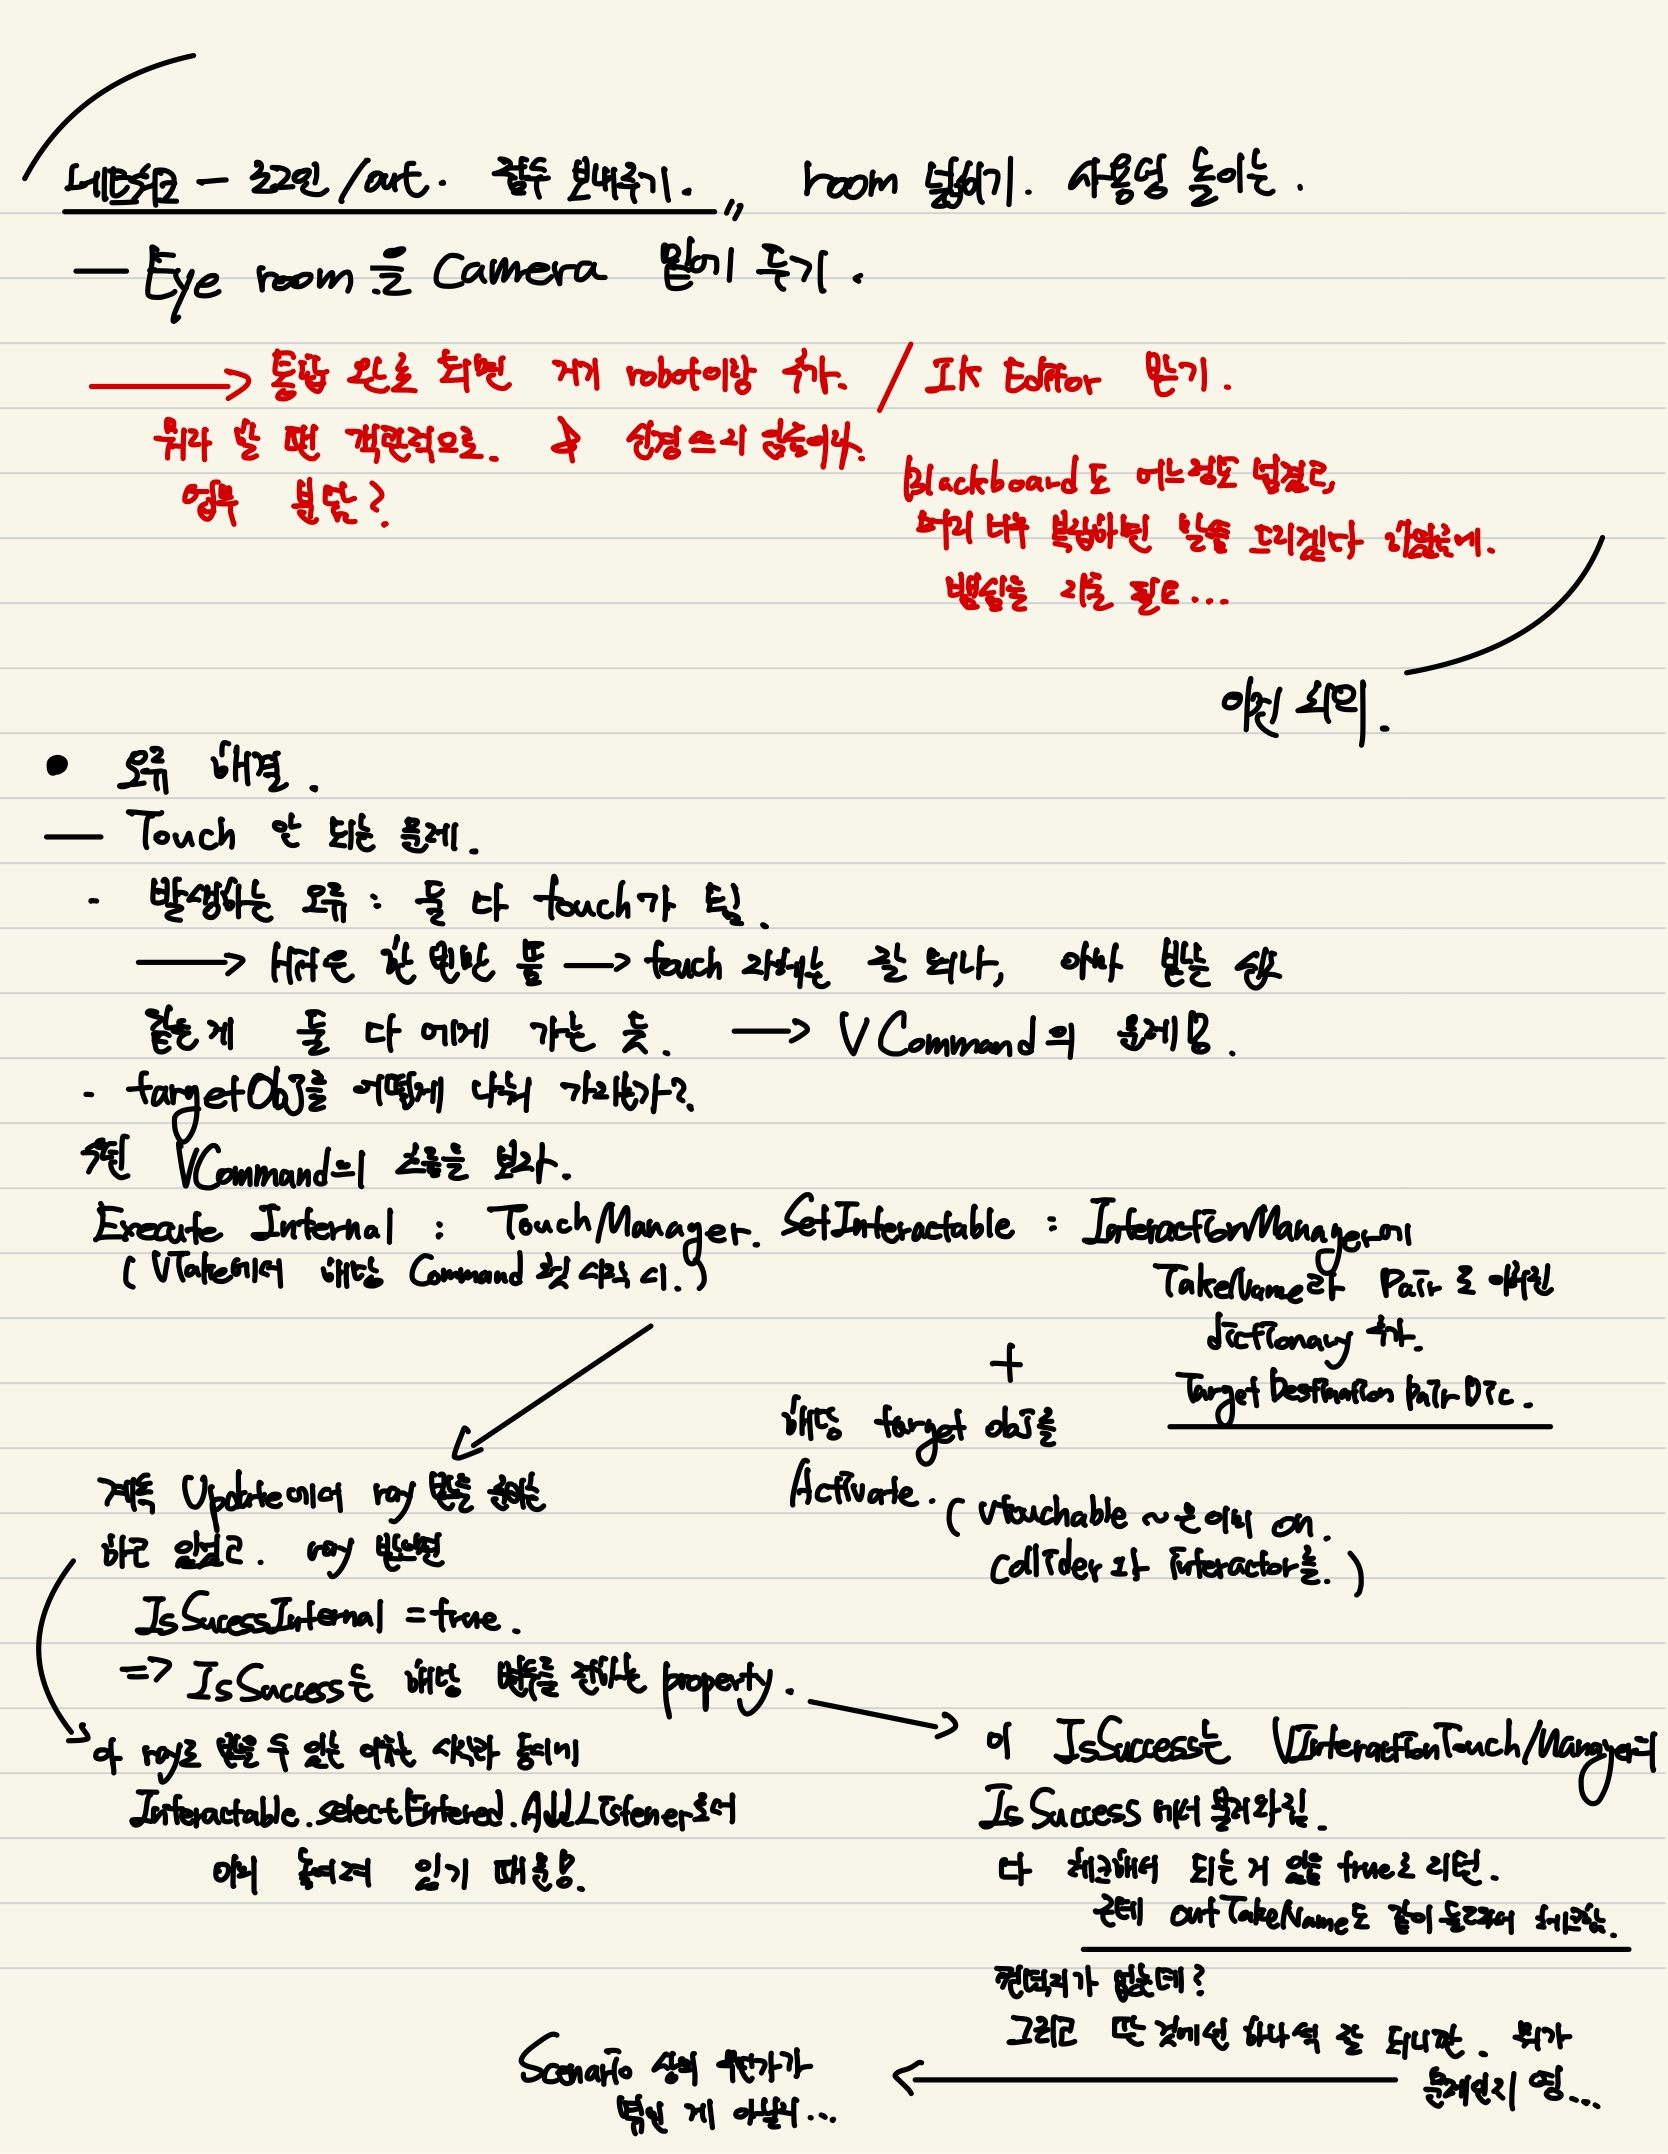 로그인 / art. 접수 보내주기. " room 넓히기. 사용성 높이는.
— Eye room을 Camera 밑에 두기.
→ 통합 완료 되면 거기 robot이랑 추가. / Ik Editor 받기.
뭐라 할 땐 객관적으로. 신경 쓰지 힘들어라.
업무 분담?
Blackboard도 어느정도 넘겼고,
머리 너무 복잡하면 말씀 드리겠다 하였는데.
필요...
이전 회의.
• 오류 해결.
— Touch 안 되는 문제.
- 발생하는 오류 : 둘 다 touch가 됨.
→ 하지만 한 번만 뜸 → touch 자체는 잘 되나, 아마 받는 신호
같은 게 둘 다 에게 가는 듯. → VCommand의 문제임.
- targetObj를 어떻게 나눠 가지는가?
우선 VCommand의 흐름을 보자.
Execute Internal : TouchManager. SetInteractable : InteractionManager에
(VTake에서 해당 Command 첫 시작 시.)
TakeName과 Pair로 이뤄진
dictionary 추가.
Target Destination Pair Dic.
+
해당 target obj를
Activate. (Vtouchable ~은 이미 on.
Collider와 interactor를.)
계속 Update에서 ray 받을 준비는
하고 있었고. ray 받으면
IsSucessInternal = true.
=> IsSuccess는 해당 변수를 전하는 property.
→ 아 ray로 받을 수 있는 이유는 시작과 동시에
Interactable.selectEntered.AddListener로서
이미 놓여져 있기 때문임.
→ 이 IsSuccess는 VInteractionTouchManager의
IsSuccess에서 불러와짐.
다 체크해서 되는 거 있음 true로 리턴.
근데 outTakeName도 같이 돌려주어 체크함.
헷갈리가 없는데?
그리고 딴 것에선 하나씩 잘 되니깐. 뭐가
문제인지 영...
← Scenario 상의 무언가가
엮인 게 아닐지...